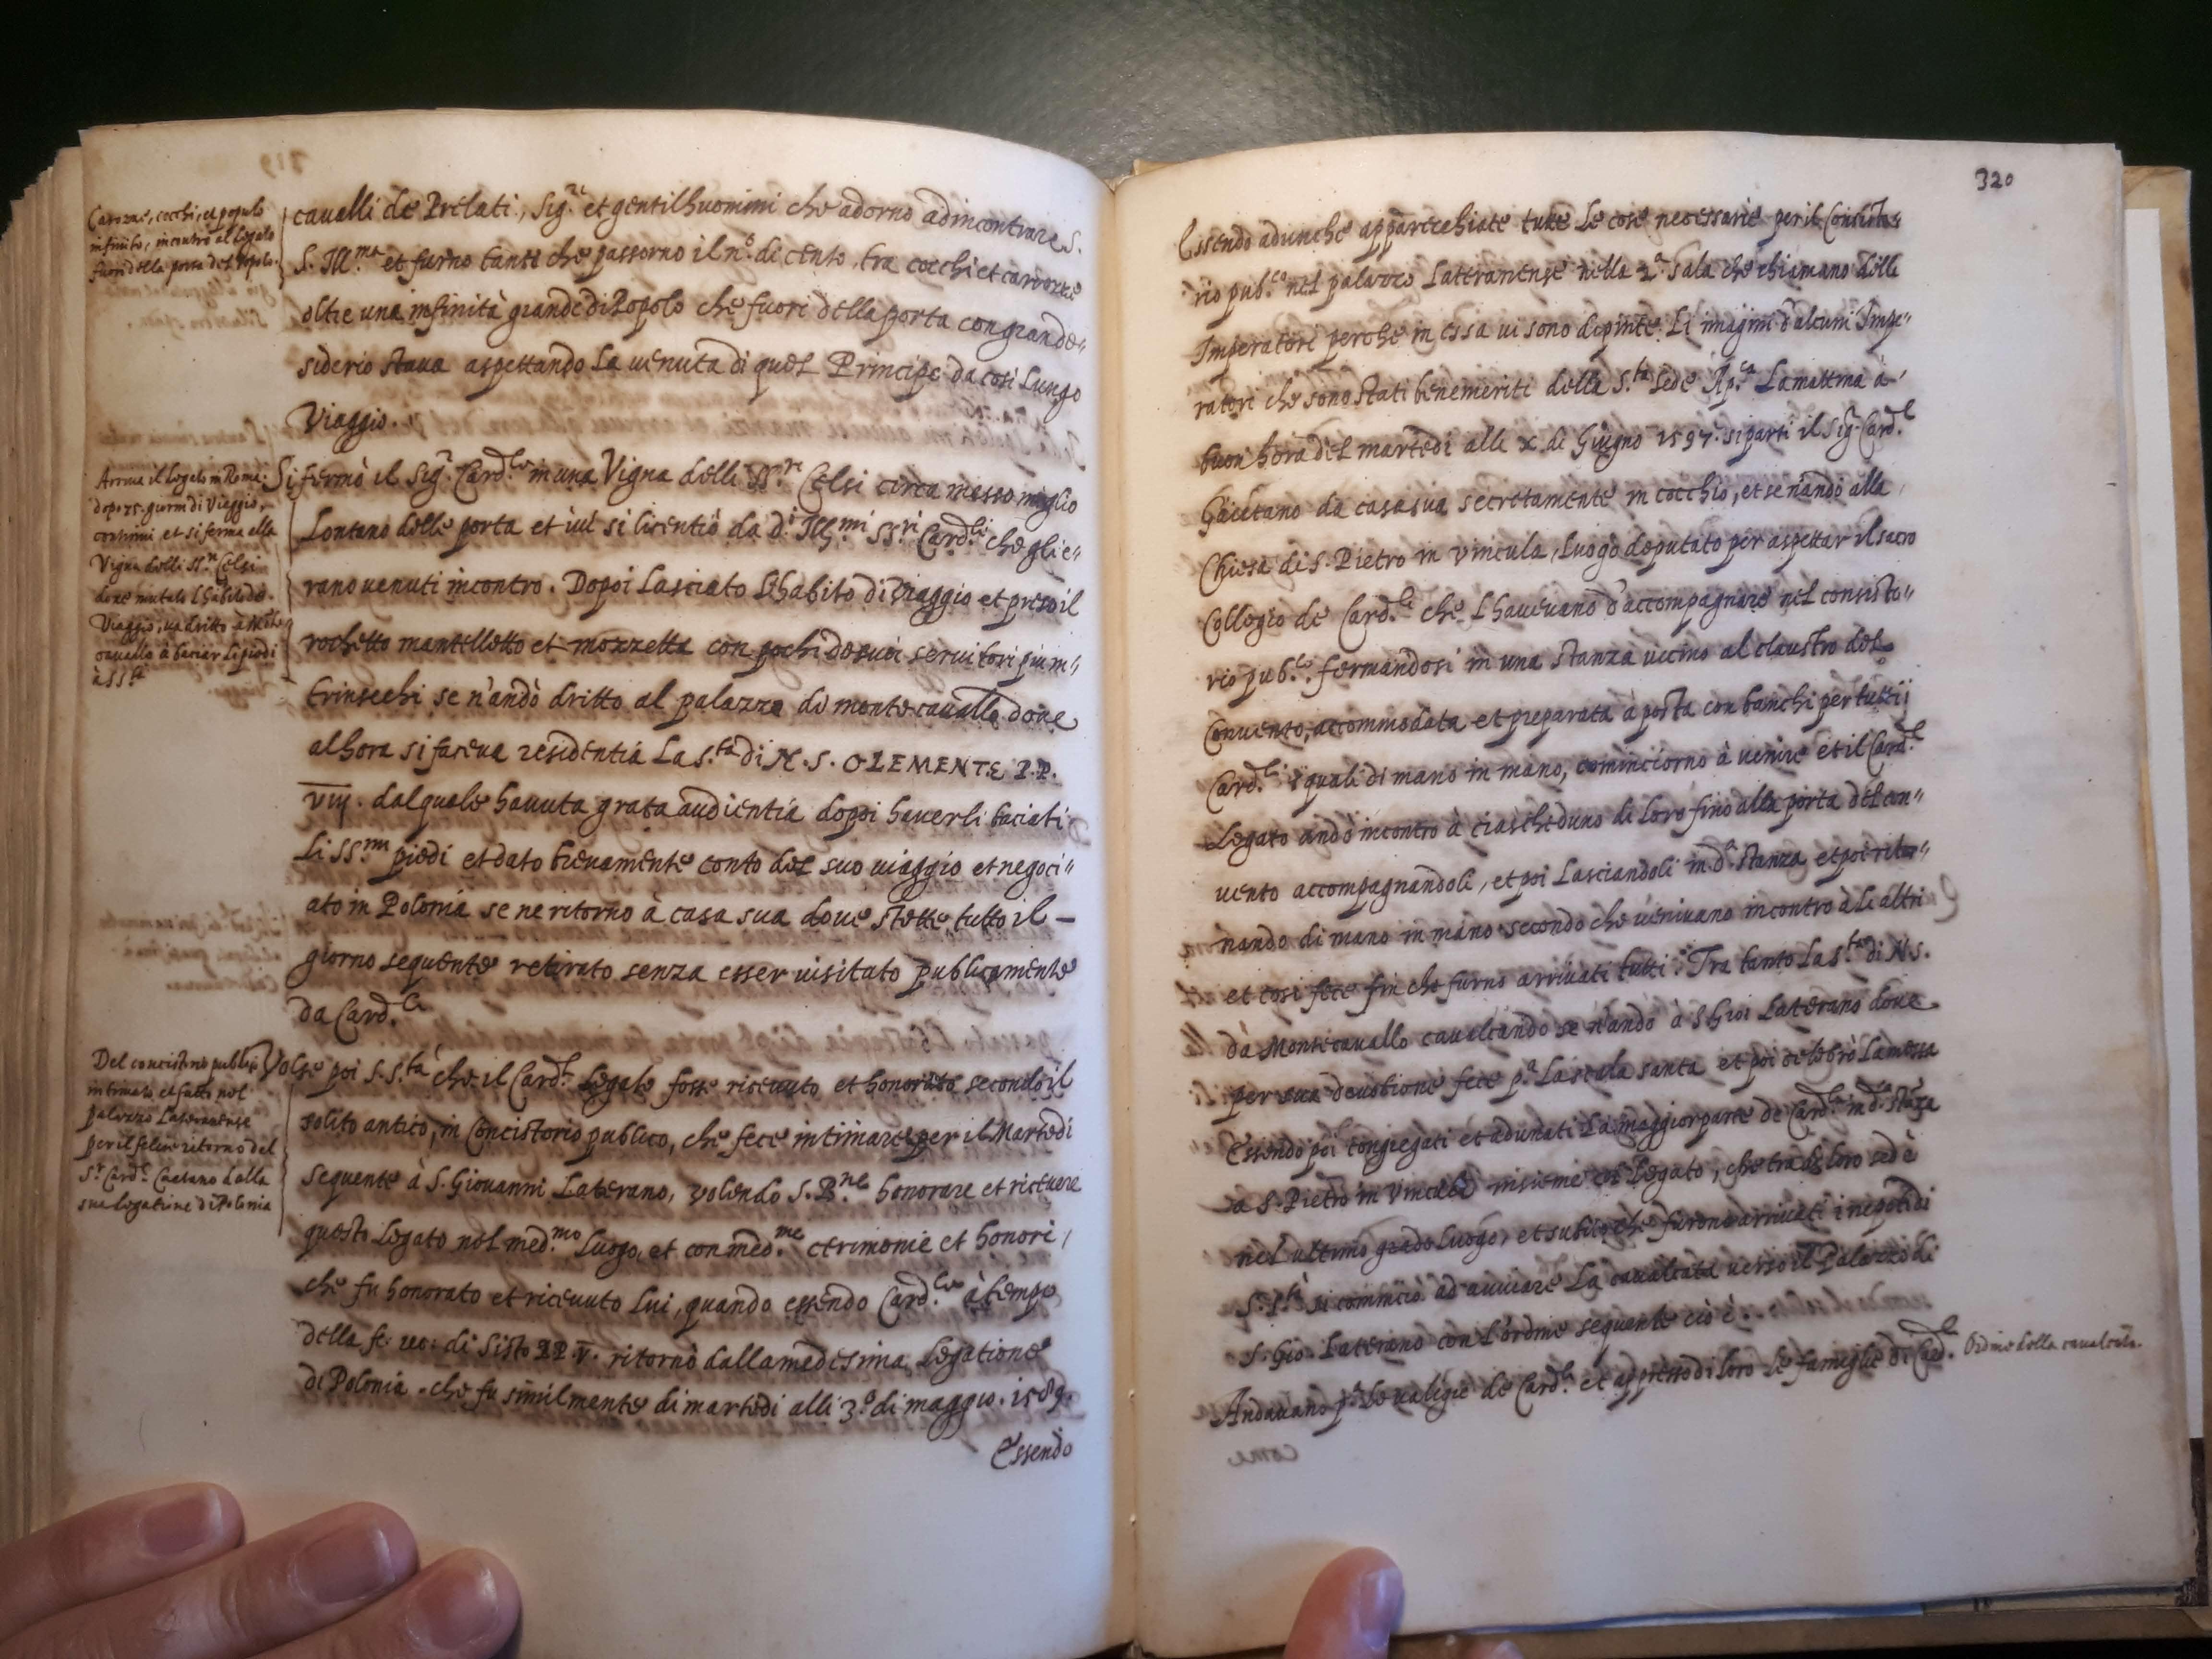 Carozze, cocchi, et populo
infinito, incontro al Legato
fuori della porta del Popolo.
cavalli de Prelati, Sig.ri et gentilhuomini che adorno adincontrare S.
S. Ill.ma et furno tanti che passorno il n.o di cento, tra cocchi et carrozze
oltre una infinità grande di Popolo che fuori della porta con grande"
siderio stava aspettando la venuta di quel Principe da cosi lungo
Viaggio.
Arriva il Legato in Roma
dopo 75. giorni di Viaggio,
continui et si ferma alla
Vigna delli SS.ri Celsi
dove mutato l'habito de
Viaggio, va dritto a Monte
cavallo à baciar li piedi
à S.S.tà
Si fermò il Sig.r Card.le in una Vigna delli SS.ri Celsi circa messo miglio
Lontano delle porta et ivi si licentiò da d.i Ill.mi SS.ri Card.li che gli e"
rano venuti incontro. Dopoi lasciato l'habito di Viaggio et preso il
rochetto mantelletto et mozzetta con pochi de suoi servitori piu in"
trinsechi se n'andò dritto al palazzo di monte cavallo dove
alhora si faceva residentia La S.tà di N. S. CLEMENTE P.P.
VIIJ. dal quale havuta grata audientia dopoi haverli baciati
li SS.mi piedi et dato brevamente conto del suo viaggio et negoci"
ato in Polonia se ne ritorno à casa sua dove stette tutto il —
giorno sequente retirato senza esser visitato publicamente
da Card.li
Del concistorio publico
intimato, et fatto nel
palazzo Lateranense
per il felice ritorno del
S.r Card.l Caetano dalla
sua legatione di Polonia
Volse poi S. S.tà che il Card.l Legato fosse ricevuto et honorato secondo il
solito antico, in Concistorio publico, che fece intimare per il Martedi
sequente à S. Giovanni Laterano, volendo S. B.ne honorare et ricevere
questo Legato nel med.mo Luogo, et con med.me cerimonie et honori,
che fu honorato et ricevuto Lui, quando essendo Card.le à tempo
della fe: re: di Sisto P.P. V. ritornò dalla medesima Legatione
di Polonia. che fu similmente di martedi alli 3.o di maggio. 1589.
Essendo
320
Essendo adunche apparecchiate tutte le cose necessarie per il Consisto"
rio pub.co nel palazzo Lateranense nella 2.a sala che chiamano delli
Imperatori perche in essa vi sono depinte li imagini d'alcuni Impe"
ratori che sono stati benemeriti della S.ta Sede Ap.ca La mattina à
buon hora del martedi alli X di Giugno 1597. si parti il Sig.r Card.l
Gaietano da casa sua secretamente in cocchio, et se n'andò alla
Chiesa di S. Pietro in vincula, luogo deputato per aspettar il sacro
Collegio de Card.li che l'havevano d'accompagnare nel consisto"
rio pub.co fermandosi in una stanza vicino al claustro del
Convento, accommodata et preparata à posta con banchi per tutti i
Card.li i quali di mano in mano, cominciorno à venire et il Card.l
Legato andò incontro à ciascheduno di loro fino alla porta del con"
vento accompagnandoli, et poi lasciandoli in d.a stanza et poi ritor"
nando di mano in mano secondo che venivano incontro à li altri
et cosi fece fin che furno arrivati tutti. Tra tanto la S.tà di N.S.
dà Montecavallo cavalcando se n'andò à S Gioi Laterano dove
per sua devotione fece p.a la scala santa et poi celebrò la messa
Essendo poi congregati et adunati la maggior parte de Card.li in d.a stanza
à S. Pietro in Vincula insieme col Legato, che tra di loro sedè
nel ultimo grado luogo, et subito che furono arrivati i nepoti di
S. S.tà si cominciò ad avviare la cavalcata verso il Palazzo di
S. Gio. Laterano con l'ordine sequente cio è.
Andavano p.a le valigie de Card.li et appresso di loro le famiglie di Card.l
Ordine della cavalcata.